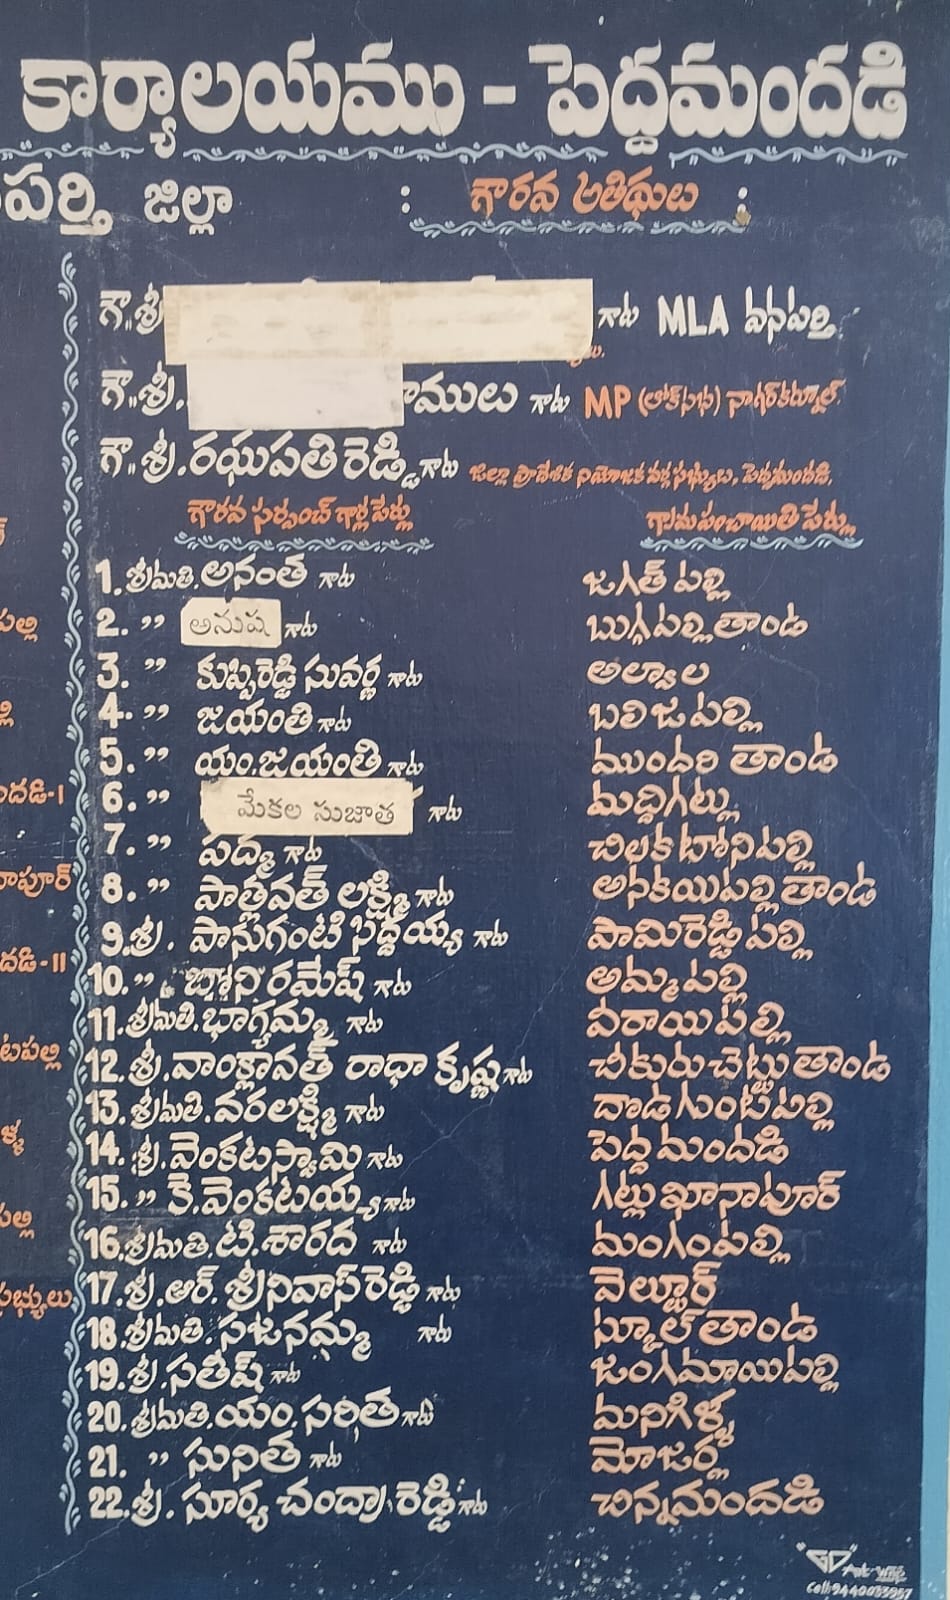 కార్యాలయము - పెద్దమందడి
పర్తి జిల్లా : గౌరవ అతిథుల :
గౌ॥శ్రీ గారు MLA వనపర్తి.
గౌ॥శ్రీ. రాములు గారు MP (లోక్‌సభ) నాగర్‌కర్నూల్.
గౌ॥శ్రీ. రఘుపతి రెడ్డి గారు జిల్లా ప్రాదేశిక నియోజక వర్గ సభ్యులు, పెద్దమందడి.
గౌరవ సర్పంచ్ గార్ల పేర్లు గ్రామ పంచాయితి పేర్లు
1. శ్రీమతి. అనంత గారు జగత్ పల్లి
2. ,, అనుష గారు బుగ్గపల్లి తాండ
3. ,, కుప్పిరెడ్డి సువర్ణ గారు అల్వాల
4. ,, జయంతి గారు బలిజపల్లి
5. ,, యం.జయంతి గారు ముందరి తాండ
6. ,, మేకల సుజాత గారు మద్దిగట్లు
7. ,, పద్మ గారు చిలకటోనిపల్లి
8. ,, పాత్లవత్ లక్ష్మి గారు అనకయిపల్లి తాండ
9. శ్రీ. పానుగంటి సిద్దయ్య గారు పామిరెడ్డి పల్లి
10. ,, రమేష్ గారు అమ్మపల్లి
11. శ్రీమతి. భాగ్యమ్మ గారు వీరాయిపల్లి
12. శ్రీ. వాంక్లావత్ రాధా కృష్ణ గారు చీకురుచెట్టు తాండ
13. శ్రీమతి. వరలక్ష్మి గారు దొడగుంటపల్లి
14. శ్రీ. వెంకటస్వామి గారు పెద్దమందడి
15. ,, కె.వెంకటయ్య గారు గట్లు ఖానాపూర్
16. శ్రీమతి. టి.శారద గారు మంగంపల్లి
17. శ్రీ. ఆర్. శ్రీనివాస్ రెడ్డి గారు వెల్టూర్
18. శ్రీమతి. సజనమ్మ గారు స్కూల్ తాండ
19. శ్రీ. సతీష్ గారు జంగమాయిపల్లి
20. శ్రీమతి. యం. సరిత గారు మనిగిళ్ళ
21. ,, సునిత గారు మోజర్ల
22. శ్రీ. సూర్య చంద్రా రెడ్డి గారు చిన్నమందడి
"GD"
Cell: 9440033957